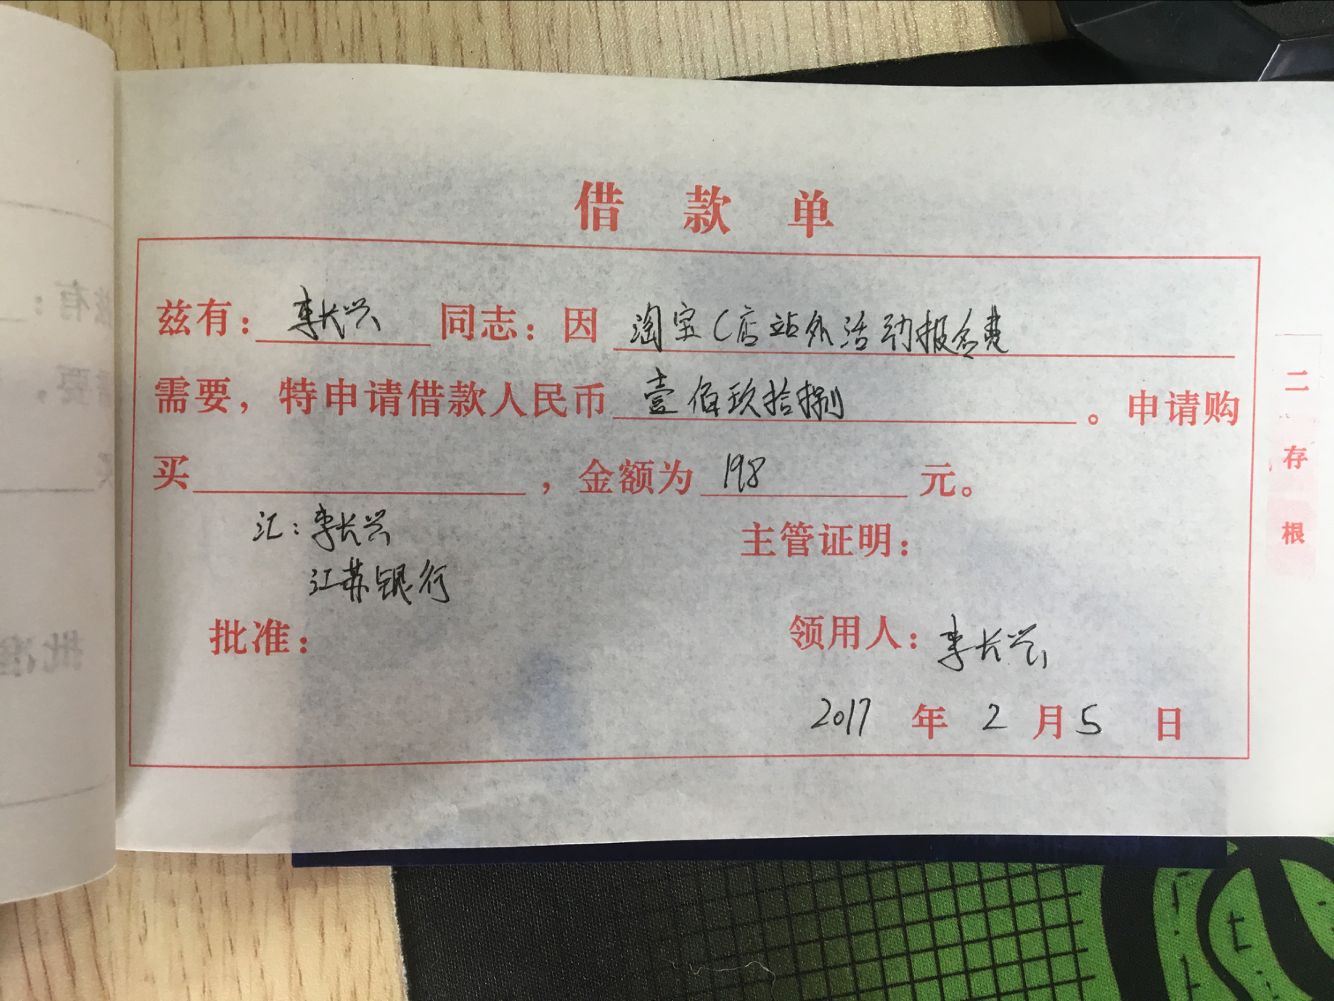 借款单
兹有：李长兴 同志：因 淘宝C店站外活动报名费
需要，特申请借款人民币 壹佰玖拾捌 。申请购
买 ，金额为 198 元。
汇：李长兴
江苏银行
主管证明：
批准：
领用人：李长兴
2017 年 2 月 5 日
二 存根